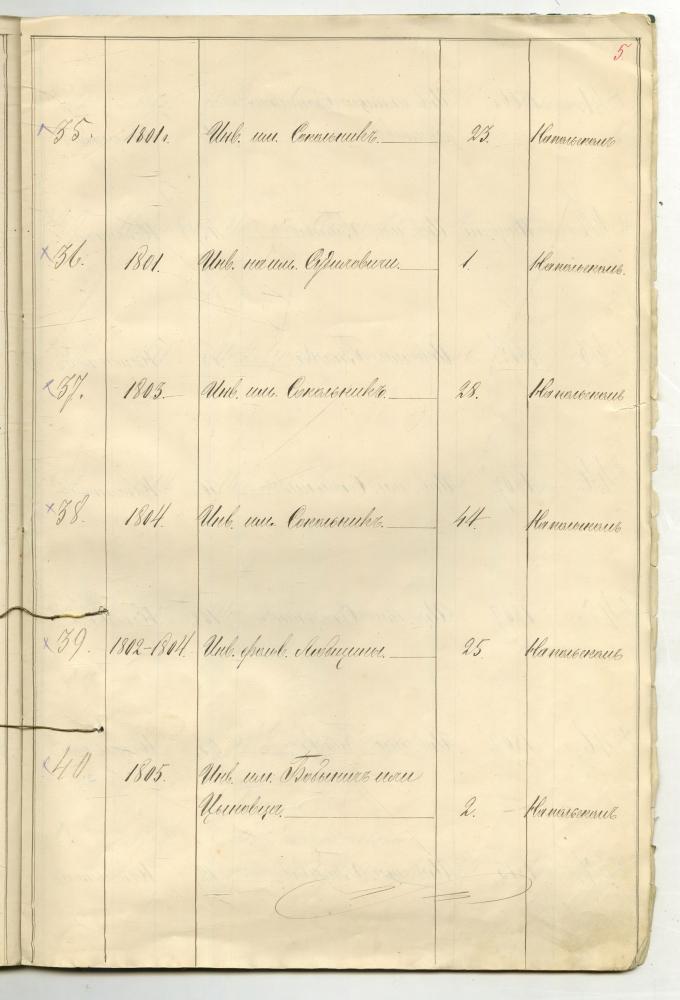 5
35. 1801 г. Инв. им. Сокольникъ. 23. На польскомъ
36. 1801. Инв. на им. Судиловичи. 1. На польскомъ.
37. 1803. Инв. им. Сокольникъ. 28. На польскомъ
38. 1804. Инв. им. Сокольникъ. 44. На польскомъ
39. 1802-1804. Инв. фольв. Любщины. 25. На польскомъ
40. 1805. Инв. им. Бабыничъ или
Цыновца. 2. На польскомъ